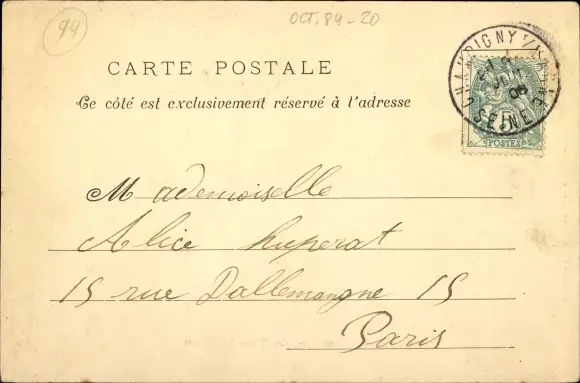 94
OCT. 84 - 20
CARTE POSTALE
Ce côté est exclusivement réservé à l'adresse
CHAMPIGNY S/MARNE
JUIN
03
SEINE
5
POSTES
Mademoiselle
Alice Huperat
15 rue Dallemangne 15
Paris